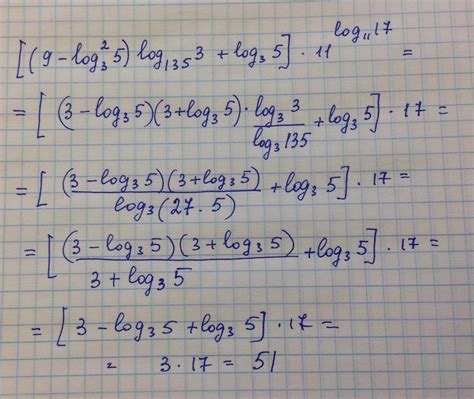 [(9 - log₃² 5) log₁₃₅ 3 + log₃ 5] · 11^(log₁₁ 17) =
= [(3 - log₃ 5)(3 + log₃ 5) · (log₃ 3)/(log₃ 135) + log₃ 5] · 17 =
= [((3 - log₃ 5)(3 + log₃ 5))/(log₃(27 · 5)) + log₃ 5] · 17 =
= [((3 - log₃ 5)(3 + log₃ 5))/(3 + log₃ 5) + log₃ 5] · 17 =
= [3 - log₃ 5 + log₃ 5] · 17 =
= 3 · 17 = 51